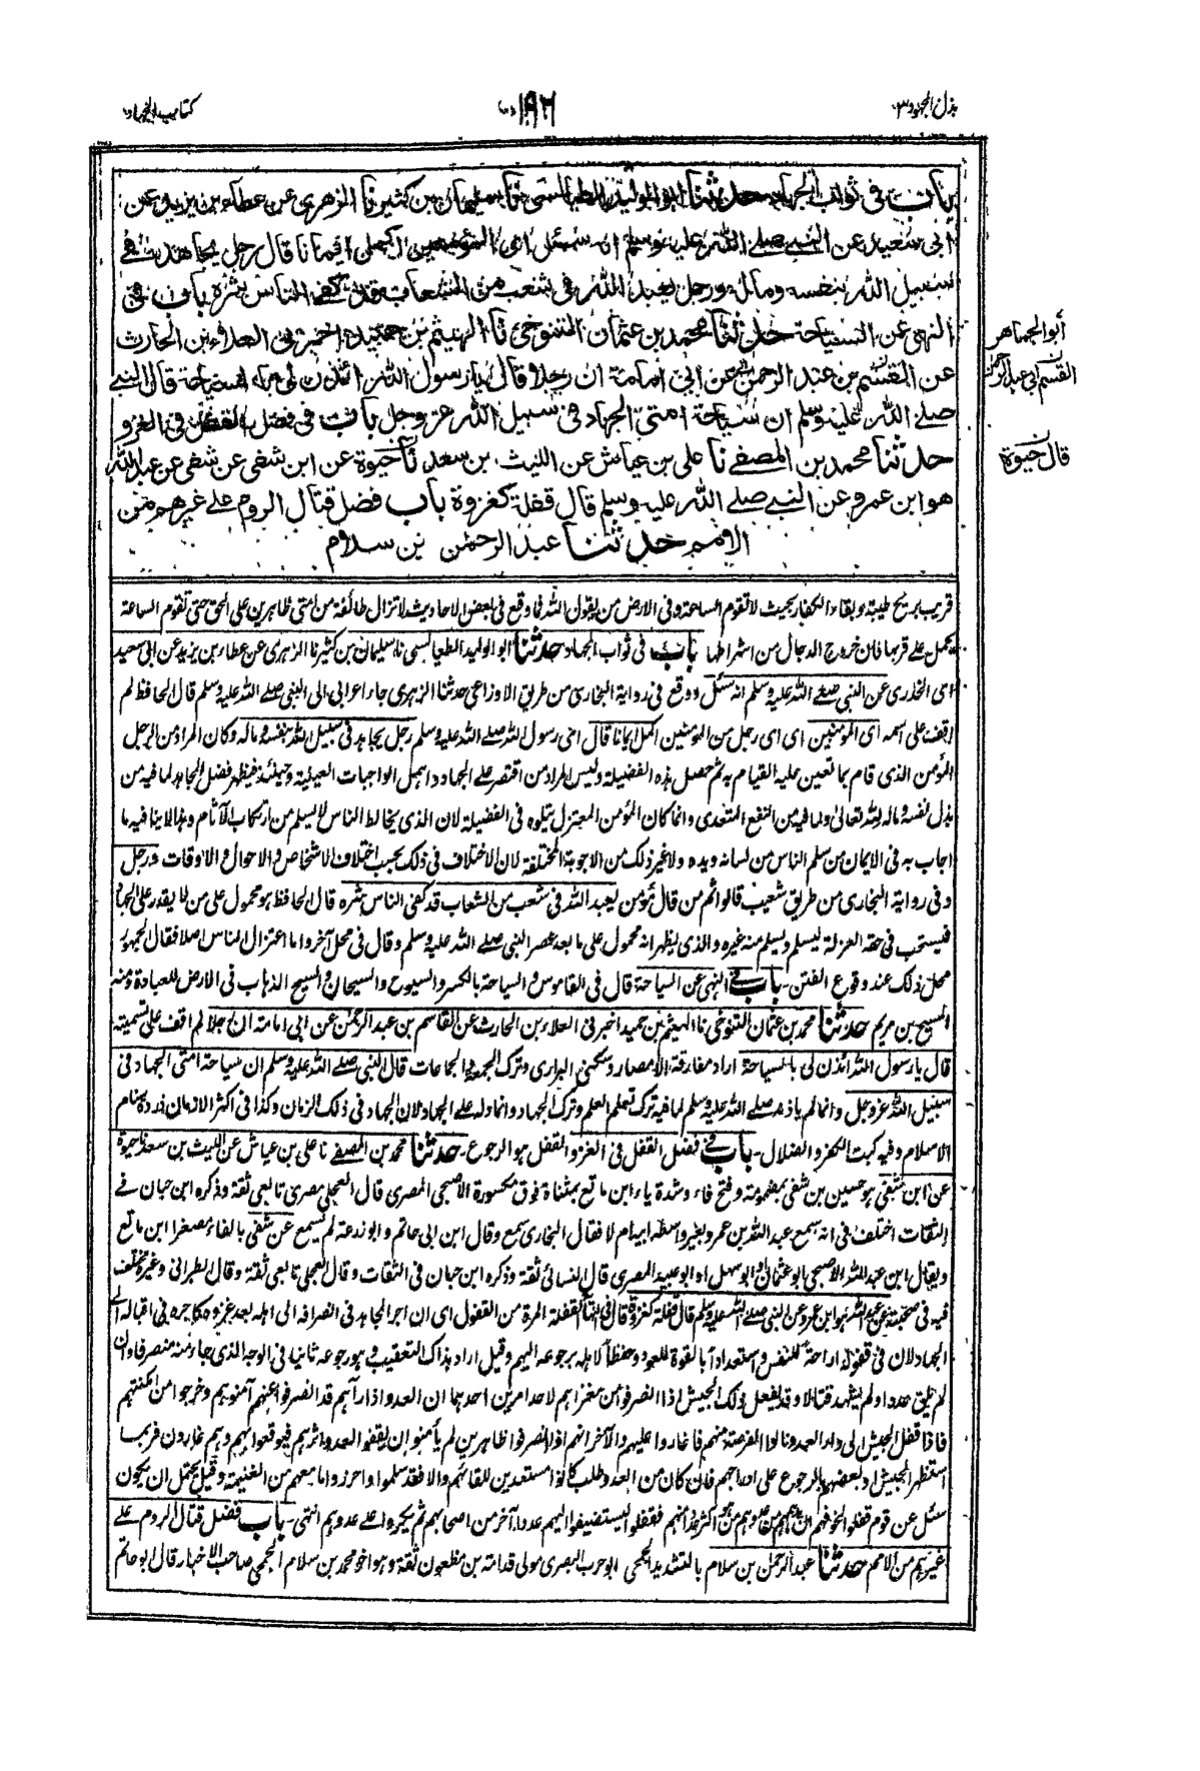 بذل المجهود ٣
١٩٢
كتاب الجهاد
باب في ثواب الجهاد حدثنا ابو الوليد الطيالسي نا سليمان بن كثير نا الزهري عن عطاء بن يزيد عن
ابي سعيد عن النبي صلے الله عليه وسلم انه سئل اي المؤمنين اكمل ايمانا قال رجل يجاهد في
سبيل الله بنفسه وماله ورجل يعبد الله في شعب من الشعاب قد كفے الناس شره باب في
النهي عن السياحة حدثنا محمد بن عثمان التنوخي نا الهيثم بن حميد اخبرني العلاء بن الحارث
عن القسم بن عبد الرحمن عن ابي امامة ان رجلا قال يا رسول الله ائذن لي السياحة قال النبي
صلے الله عليه وسلم ان سياحة امتي الجهاد في سبيل الله عز وجل باب في فضل القفل في الغزو
حدثنا محمد بن المصفے نا علي بن عياش عن الليث بن سعد نا حيوة عن ابن شفي عن شفي عن عبد الله
هو ابن عمرو عن النبي صلے الله عليه وسلم قال قفلة كغزوة باب فضل قتال الروم علے غيرهم من
الامم حدثنا عبد الرحمن بن سلام
أبو الجماهر
القسم ابي عبد الرحمن
قال حيوة
قريب بريح طيبة وبقاء الكفار بحيث لا تقوم الساعة وفي الارض من يقول الله فما وقع في بعض الاحاديث لا تزال طائفة من امتي ظاهرين على الحق حتى تقوم الساعة
يحمل على قربها فان خروج الدجال من اشراطها باب في ثواب الجهاد حدثنا ابو الوليد الطيالسي نا سليمان بن كثير نا الزهري عن عطاء بن يزيد عن ابي سعيد
اي الخدري عن النبي صلے الله عليه وسلم انه سئل ووقع في رواية البخاري من طريق الاوزاعي حدثنا الزهري جاء اعرابي الى النبي صلے الله عليه وسلم قال الحافظ لم
اقف على اسمه اي المؤمنين اي اي رجل من المؤمنين اكمل ايمانا قال اي رسول الله صلے الله عليه وسلم رجل يجاهد في سبيل الله بنفسه وماله وكان المراد من الرجل
المؤمن الذي قام بما تعين عليه القيام به ثم حصل هذه الفضيلة وليس المراد من اقتصر علے الجهاد واهمل الواجبات العينية وحينئذ فيظهر فضل المجاهد لما فيه من
بذل نفسه وماله لله تعالى ولما فيه من النفع المتعدي وانما كان المؤمن المعتزل يتلوه في الفضيلة لان الذي يخالط الناس لا يسلم من ارتكاب الآثام وهذا لا ينافيه ما
اجاب به في الايمان من سلم الناس من لسانه ويده ولا غير ذلك من الاجوبة المختلفة لان الاختلاف في ذلك بحسب اختلاف الاشخاص والاحوال والاوقات ورجل
وفي رواية البخاري من طريق شعيب قالوا ثم من قال مؤمن يعبد الله في شعب من الشعاب قد كفى الناس شره قال الحافظ هو محمول على من لا يقدر على الجهاد
فيستحب في حقه العزلة ليسلم ويسلم منه غيره والذي يظهر انه محمول على ما بعد عصر النبي صلے الله عليه وسلم وقال في محل آخر واما اعتزال الناس اصلا فقال الجمهور
محل ذلك عند وقوع الفتن۔ باب في النهي عن السياحة قال في القاموس والسياحة بالكسر والسيوح والسيحان والسيح الذهاب في الارض للعبادة ومنه
المسيح بن مريم حدثنا محمد بن عثمان التنوخي نا الهيثم بن حميد اخبرني العلاء بن الحارث عن القاسم بن عبد الرحمن عن ابي امامة ان رجلا لم اقف على تسميته
قال يا رسول الله ائذن لي بالسياحة اراد مفارقة الامصار وسكنى البراري وترك الجمعة والجماعات قال النبي صلے الله عليه وسلم ان سياحة امتي الجهاد في
سبيل الله عز وجل وانما لم ياذنه صلے الله عليه وسلم لما فيه ترك تعلم العلم وترك الجهاد وانما دله علے الجهاد لان الجهاد في ذلك الزمان وكذا في اكثر الازمان ذروة سنام
الاسلام وفيه كبت الكفر والضلال۔ باب في فضل القفل في الغزو القفل هو الرجوع۔ حدثنا محمد بن المصفے نا علي بن عياش عن الليث بن سعد نا حيوة
عن ابن شفي هو حسين بن شفي بمضمومة وفتح فاء وشدة ياء ابن ماتع بمثناة فوق مكسورة الاصبحي المصري قال العجلي مصري تابعي ثقة وذكره ابن حبان في
الثقات اختلف في انه سمع عبد الله بن عمرو بغير واسطة ابيه ام لا فقال البخاري سمع وقال ابن ابي حاتم وابو زرعة لم يسمع عن شفي بالفاء مصغرا ابن ماتع
ويقال ابن عبد الله الاصبحي ابو عثمان او ابو سهل او ابو عبيد المصري قال النسائي ثقة وذكره ابن حبان في الثقات وقال العجلي تابعي ثقة وقال الطبراني وغيره مختلف
فيه في صحبته عن عبد الله هو ابن عمرو عن النبي صلے الله عليه وسلم قال قفلة كغزوة قال في القفلة المرة من القفول اي ان اجر المجاهد في انصرافه الى اهله بعد غزوه كاجره في اقباله الى
الجهاد لان في قفوله اراحة للنفس واستعدادا بالقوة للعود وحفظا لاهله برجوعه اليهم وقيل اراد بذلك التعقيب وهو رجوعه ثانيا في الوجه الذي جاء منه منصرفا وان
لم يلق عدوا ولم يشهد قتالا وقد يفعل ذلك الجيش اذا انصرفوا من مغزاهم لاحد امرين احدهما ان العدو اذا رآهم قد انصرفوا عنهم آمنوهم وخرجوا من امكنتهم
فاذا قفل الجيش الى دار العدو نالوا الفرصة منهم فاغاروا عليهم والآخر انهم اذا انصرفوا ظاهرين لم يأمنوا ان يقفو العدو اثرهم فيوقعوا بهم وهم غارون فربما
استظهر الجيش او بعضهم بالرجوع على ادراجهم فان كان من العدو طلب كانوا مستعدين للقائهم والا فقد سلموا واحرزوا ما معهم من الغنيمة وقيل يحتمل ان يكون
سئل عن قوم قفلوا لخوفهم ان يدهمهم من عدوهم من هو اكثر عددا منهم فقفلوا ليستضيفوا اليهم عددا آخر من اصحابهم ثم يكروا علے عدوهم انتهى۔ باب فضل قتال الروم علے
غيرهم من الامم حدثنا عبد الرحمن بن سلام بالتشديد الجمحي ابو حرب البصري مولى قدامة بن مظعون ثقة وهو اخو محمد بن سلام الجمحي صاحب الاخبار قال ابو حاتم